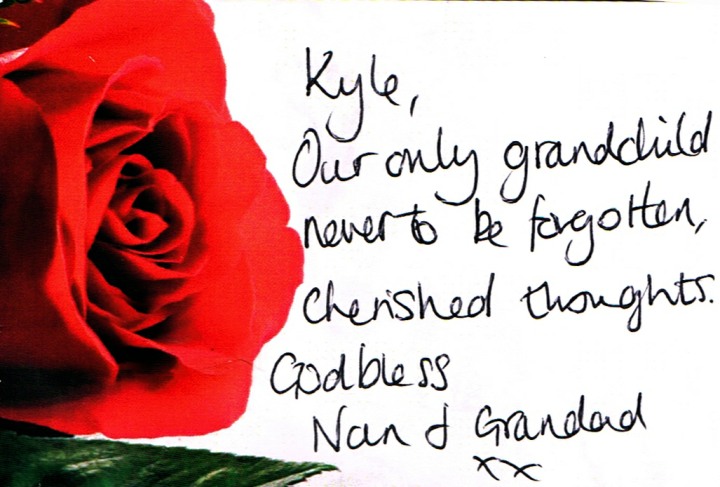 Kyle,
Our only grandchild
never to be forgotten,
cherished thoughts.
Godbless
Nan & Grandad
xx